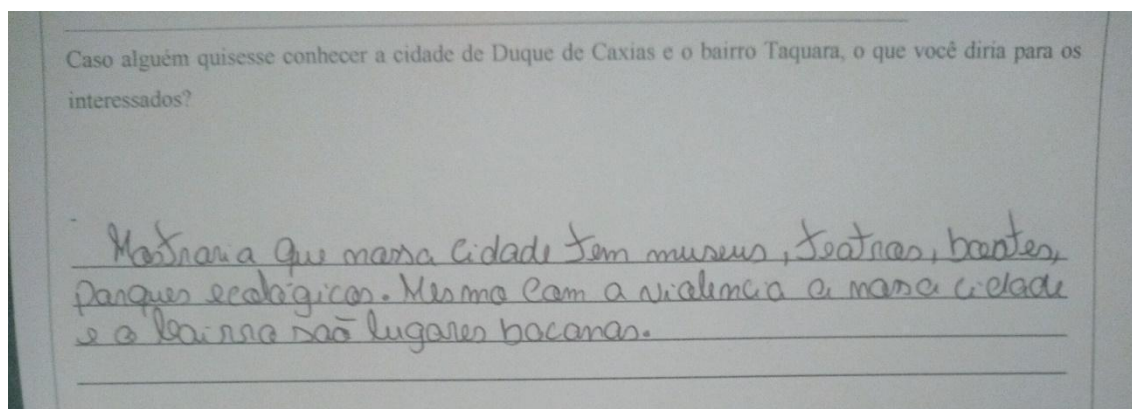 Caso alguém quisesse conhecer a cidade de Duque de Caxias e o bairro Taquara, o que você diria para os
interessados?
Mostraria que nossa cidade tem museus, teatros,
parques ecológicos. Mesmo com a violencia a nossa cidade
e o bairro são lugares bacanas.